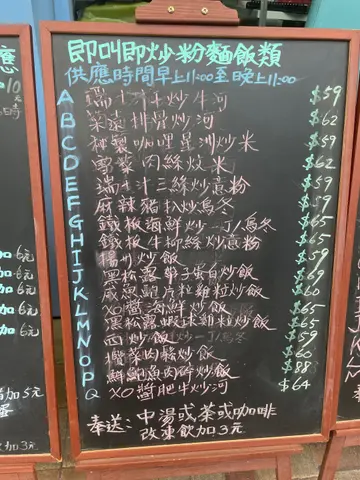 即叫即炒粉麵飯類
供應時間早上11:00至晚上11:00
A 炒牛河 $59
B 菜遠排骨炒河 $62
C 秘製咖哩星洲炒米 $59
D 雪菜肉絲炆米 $62
E 三絲炒意粉 $59
F 麻辣豬扒炒烏冬 $59
G 鐵板海鮮炒一丁/烏冬 $65
H 鐵板牛柳絲炒意粉 $65
I 揚州炒飯 $59
J 黑松露帶子蛋白炒飯 $69
K 咸魚 片雞粒炒飯 $60
L XO醬海鮮炒飯 $65
M 黑松露蝦球雞粒炒飯 $65
N 西炒飯 $59
O 欖菜肉鬆炒飯 $60
P 鮮鮑魚 炒飯 $88
Q XO醬肥牛炒河 $64
奉送：中湯或茶或咖啡
改凍飲加3元
應
10元
加6元
加6元
加6元
加6元
加6元
加5元
加3元